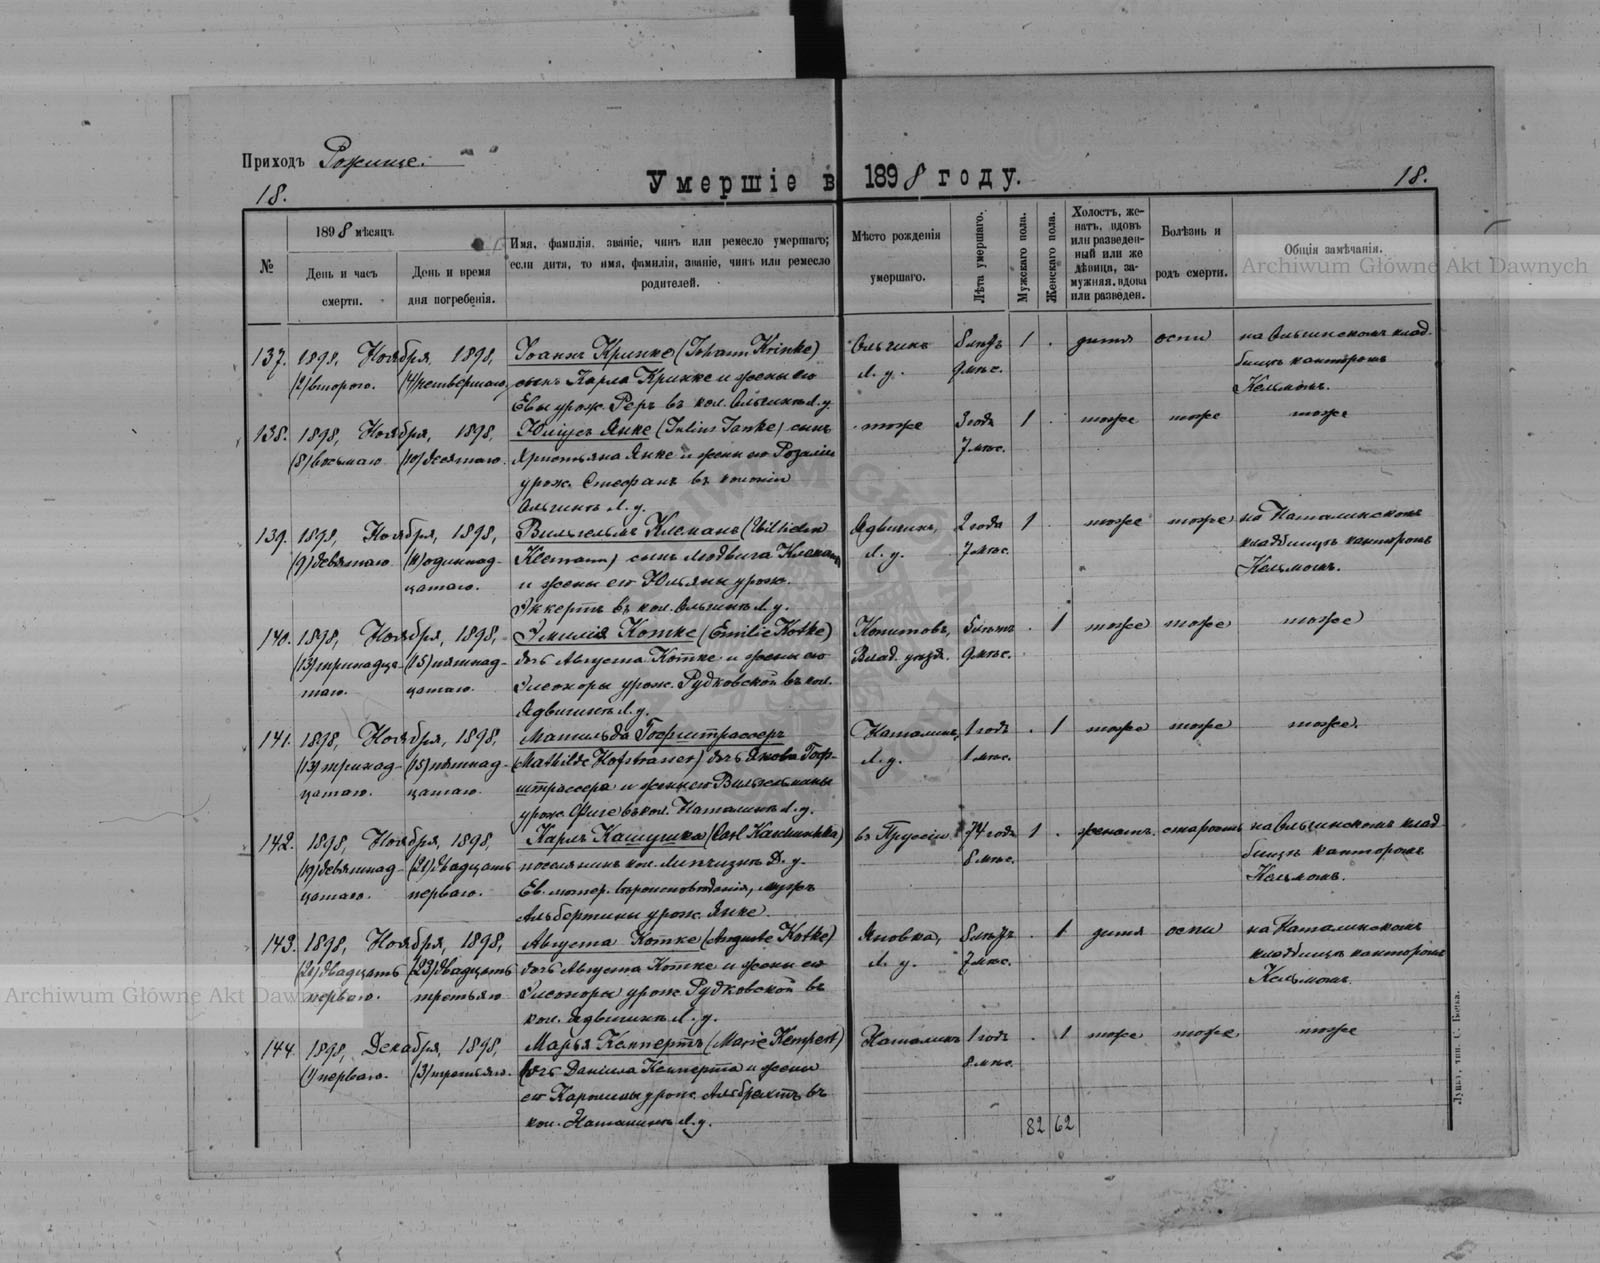 Приходъ Рожище.
Умершіе въ 1898 году.
18.
18.
№
1898 мѣсяцъ
День и часъ смерти.
День и время дня погребенія.
Имя, фамилія, званіе, чинъ или ремесло умершаго;
если дитя, то имя, фамилія, званіе, чинъ или ремесло
родителей.
Мѣсто рожденія
умершаго.
Лѣта умершаго.
Мужскаго пола.
Женскаго пола.
Холостъ, же-
натъ, вдовъ
или разведен-
ный или же
дѣвица, за-
мужняя, вдова
или разведен.
Болѣзнь и
родъ смерти.
Общія замѣчанія.
Archiwum Główne Akt Dawnych
137. 1898, Ноября, 1898, Іоаннъ Кринке (Johann Krinke) Ольгинъ 8 лѣтъ 1 . дитя оспы на Ольгинскомъ клад-
(2) второго. (4) четвертаго, сынъ Карла Кринке и жены его Л. у. 9 мѣс. бищѣ канторомъ
Евы урож. Реръ въ кол. Ольгинѣ Л. у. Кельмомъ.
138. 1898, Ноября, 1898, Юліусъ Янке (Julius Janke) сынъ тоже 3 года 1 . тоже тоже тоже
(8) восьмаго (10) десятаго. Христьяна Янке и жены его Розаліи 7 мѣс.
урож. Стефанъ въ колоніи
Ольгинѣ Л. у.
139. 1898, Ноября, 1898, Вильгельмъ Клеманъ (Wilhelm Ядвигинъ, 2 года 1 . тоже тоже на Наталинскомъ
(9) девятаго (11) одиннад- Klemann) сынъ Людвига Клемана Л. у. 7 мѣс. кладбищѣ канторомъ
цатаго. и жены его Юльяны урож. Кельмомъ.
Эккертъ въ кол. Ольгинѣ Л. у.
140. 1898, Ноября, 1898, Эмилія Котке (Emilie Kotke) Копитовъ, 5 лѣтъ . 1 тоже тоже тоже
(13) тринадца- (15) пятнад- дочь Августа Котке и жены его Влад. уѣзд. 9 мѣс.
таго. цатаго. Элеоноры урож. Рудковской въ кол.
Ядвигинѣ Л. у.
141. 1898, Ноября, 1898, Матильда Гофштрассеръ Наталинъ, 1 годъ . 1 тоже тоже тоже.
(13) тринад- (15) пятнад- (Mathilde Hofstrasser) дочь Якова Гоф- Л. у. 1 мѣс.
цатаго. цатаго. штрассера и жены его Вильгельмины
урож. Фиге въ кол. Наталинѣ Л. у.
142. 1898, Ноября, 1898, Карлъ Кашушка (Carl Kaschuschka) въ Пруссіи 74 года 1 . женатъ. старость на Ольгинскомъ клад-
(19) девятнад- (21) двадцать поселянинъ кол. Липчизнѣ Д. у. 8 мѣс. бищѣ канторомъ
цатаго. перваго. Ев. лютер. вѣроисповѣданія, мужъ Кельмомъ.
Альбертины урож. Янке.
143. 1898, Ноября, 1898, Августа Котке (Auguste Kotke) Яновка, 8 лѣтъ . 1 дитя оспы на Наталинскомъ
(21) двадцать (23) двадцать дочь Августа Котке и жены его Л. у. 7 мѣс. кладбищѣ канторомъ
перваго. третьяго Элеоноры урож. Рудковской въ Кельмомъ.
кол. Ядвигинѣ Л. у.
144. 1898, Декабря, 1898, Марья Кемпертъ (Marie Kempert) Наталинъ 1 годъ . 1 тоже тоже тоже
(1) перваго. (3) третьяго. дочь Даніила Кемперта и жены 8 мѣс.
его Каролины урож. Альбрехтъ въ
кол. Наталинѣ Л. у.
82 62
Archiwum Główne Akt Dawnych